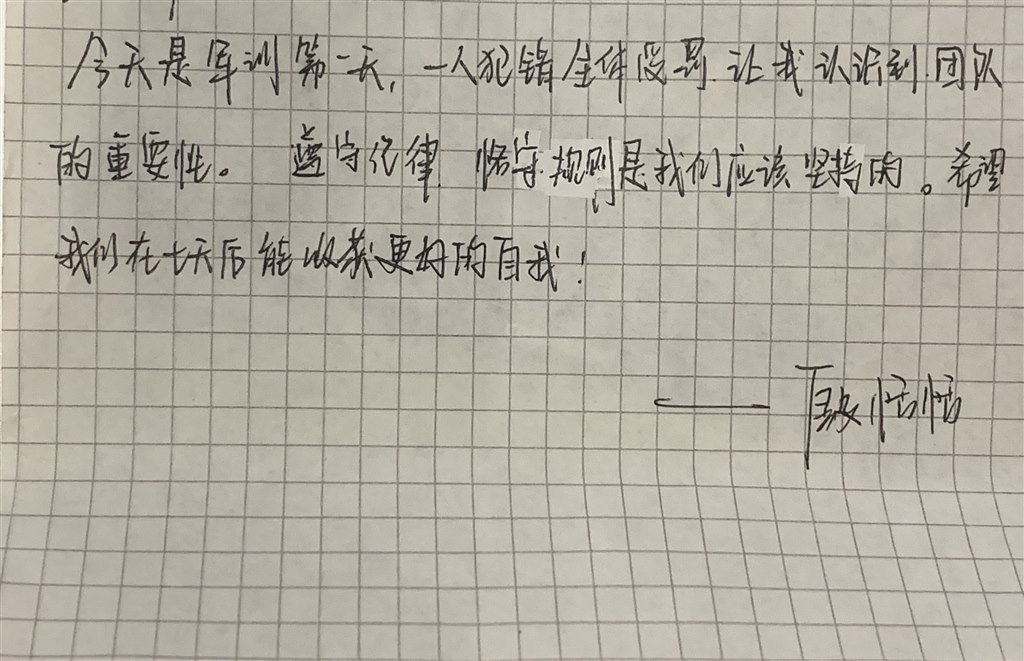 今天是军训第一天,一人犯错全体受罚.让我认识到团队
的重要性。 遵守纪律 恪守规则是我们应该坚持的。希望
我们在七天后能收获更好的自我!
—— 恬恬